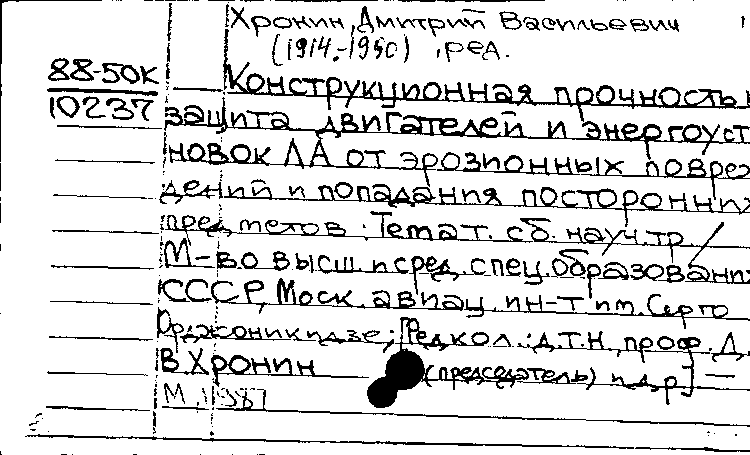 Хронин, Дмитрий Васильевич
(1914.-1990) , ред.
88-50к
10237
Конструкционная прочность и
защита двигателей и энергоуст
новок ЛА от эрозионных повреж
дений и попадания посторонних
предметов : Темат. сб. науч. тр. /
М-во высш. и сред. спец. образования
СССР, Моск. авиац. ин-т им. Серго
Орджоникидзе; [Редкол.: д.т.н., проф. Д.
В. Хронин (председатель) и др.] —
М., 1987